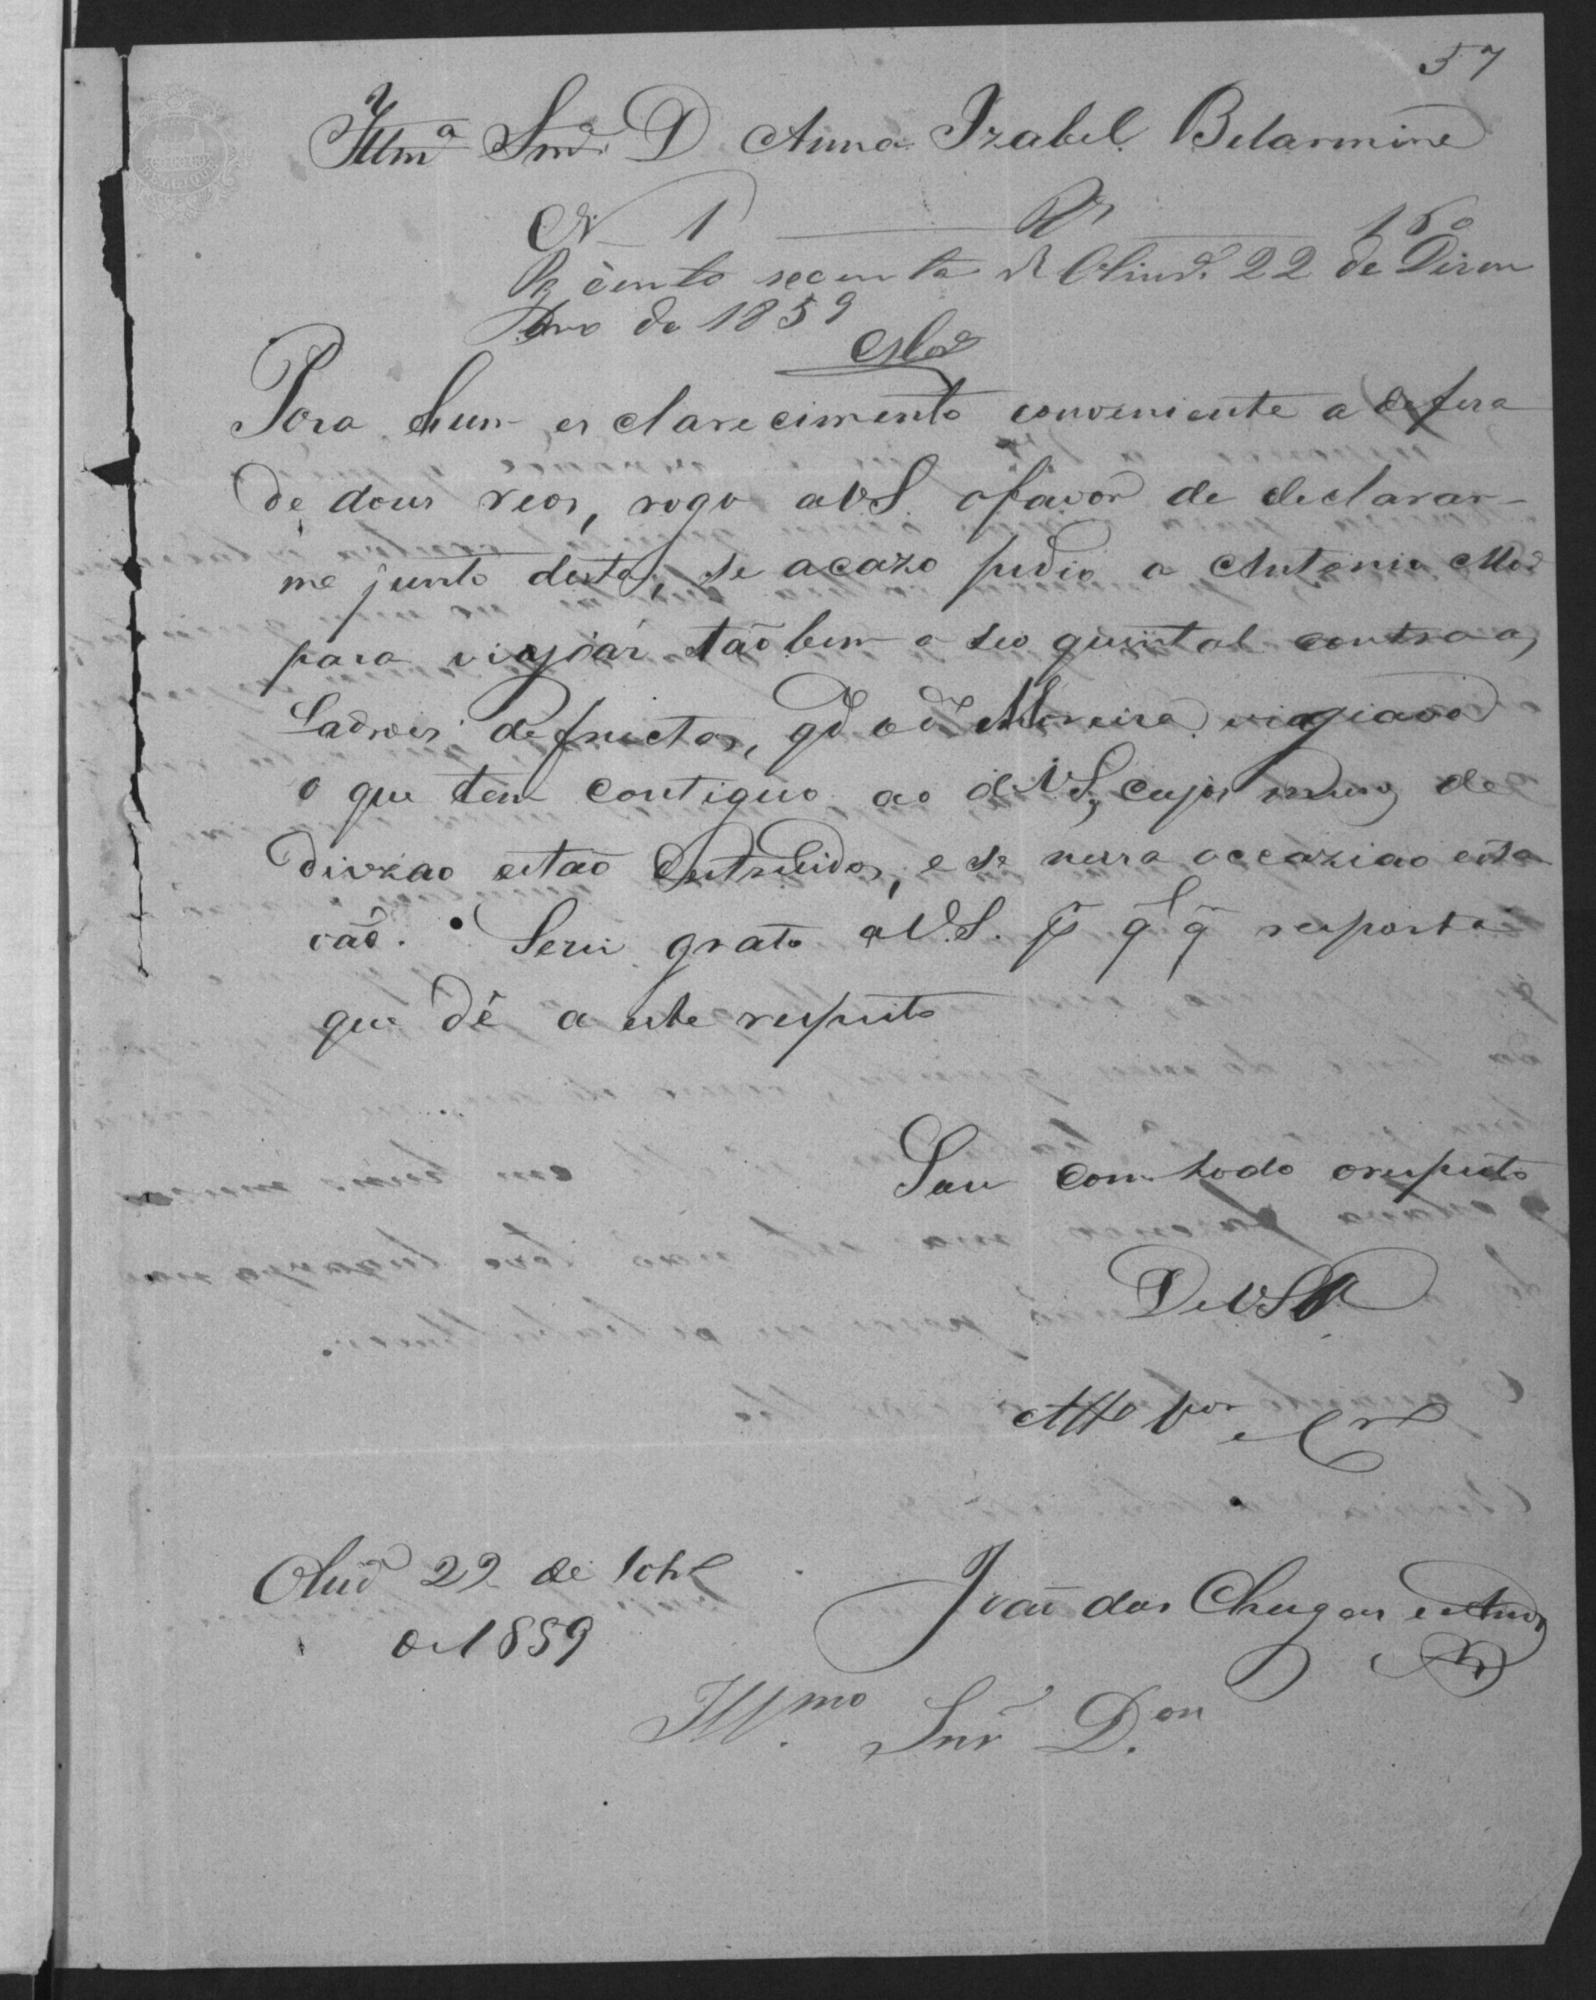 57
Illmª Snrª D Anna Izabel Belarmine
N 1 Rs 160
Pg cento secenta rs Olindª 22 de Dezem
bro de 1859
Para hum esclarecimento conveniente a defesa
de dous réos, rogo aVS. ofavor de declarar-
me junto desta, se acazo pedio a Antonio
para vigiar tãobem o seo quintal contra os
Ladroes de fructas, qdº o dº Moreira vigiava
o que tem contiguo ao dVS, cujos muros de
divzao estão destruidos, e se nessa occaziao
cão. Serei grato aV.S. pr qlqr resposta
que dê a este respeito
Sou com todo orespeito
DeVSª
Attº Vor e Crº
Olidª 22 de 10brº
de 1859
João das Chagas e
Illmo. Snr D.on